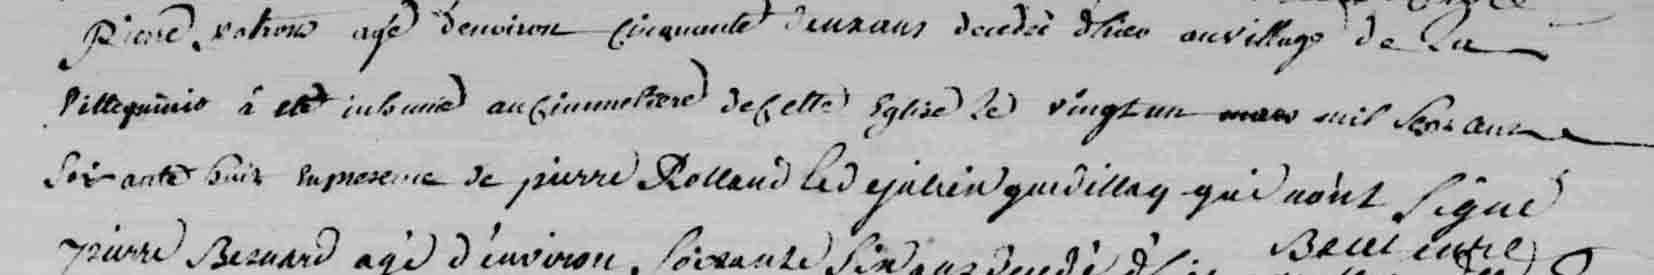 Pierre patron agé d'environ cinquante deux ans decedé d'hier au village de la
Villeguinio à eté inhumé au cimmetiere de cette Eglise le vingt un mars mil sept cent
soixante huit en presence de pierre Rolland et de julien guedillay qui n'ont signé
pierre Besnard agé d'environ soixante six ans decedé d'hier